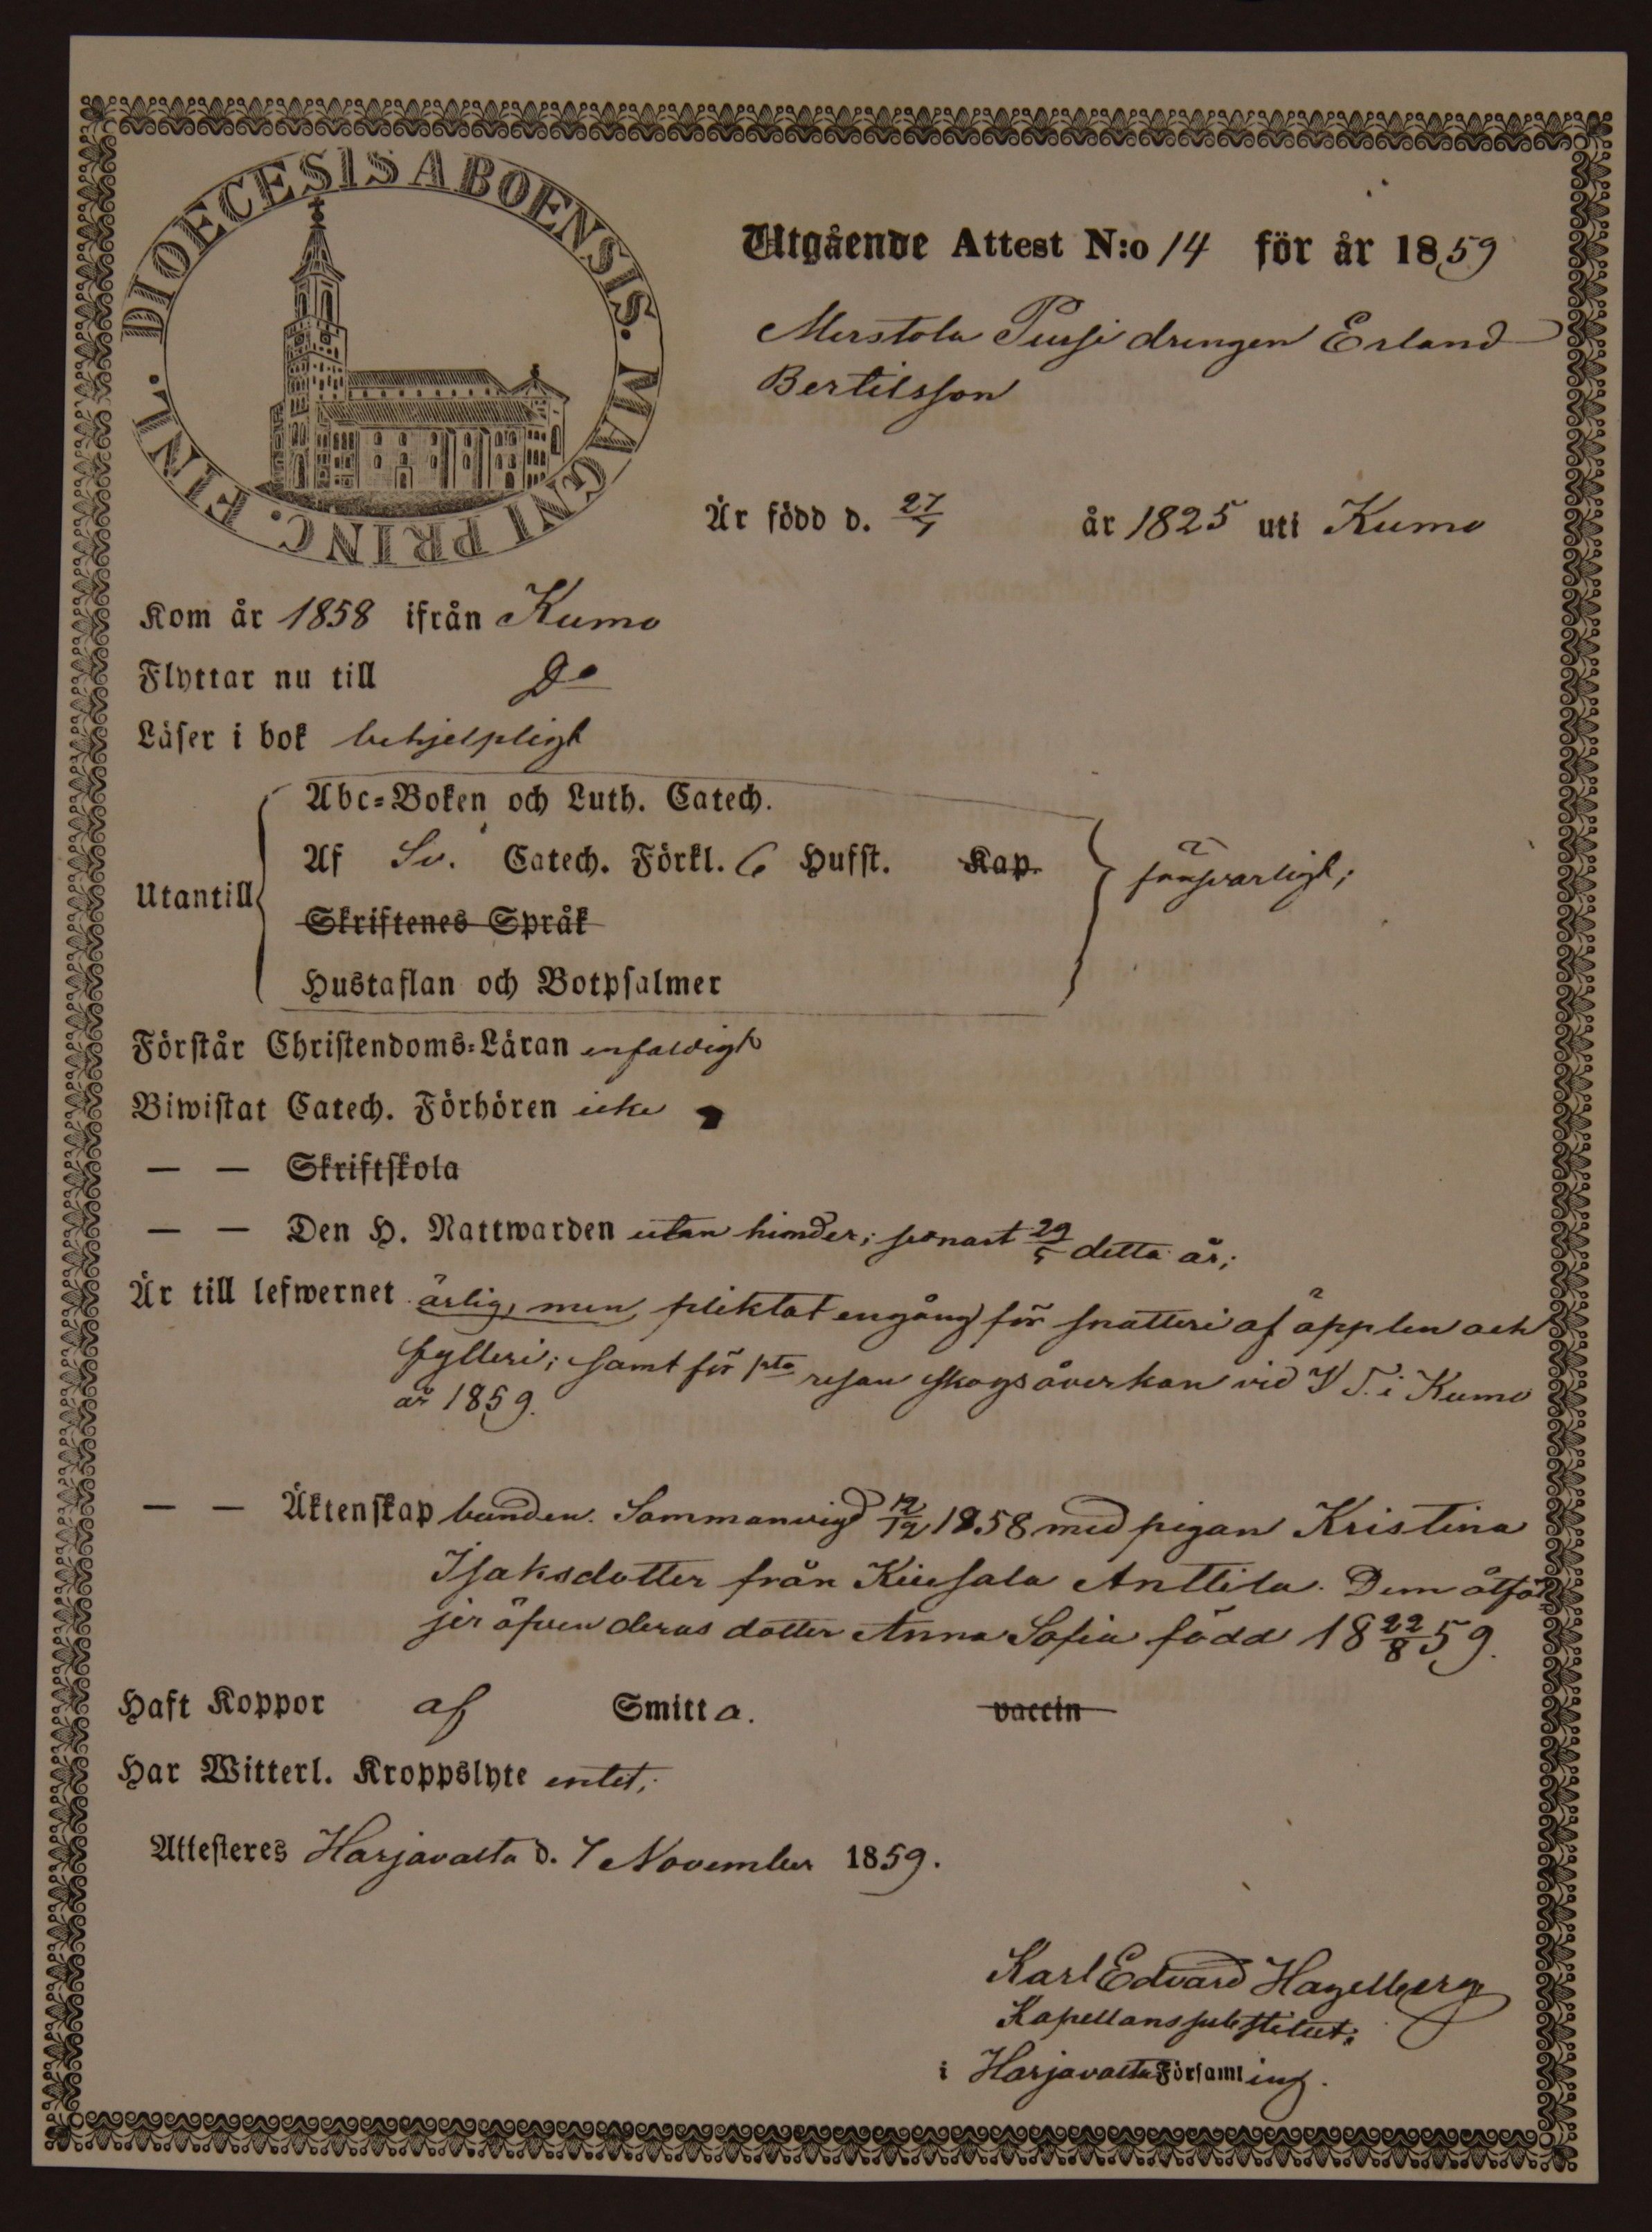 DIOECESIS ABOENSIS. MAGNI PRINC. FINL.
Utgående Attest N:o 14 för år 1859
Merstola Pursi drengen Erland
Bertilsson
Är född d. 27/7 år 1825 uti Kumo
Kom år 1858 ifrån Kumo
Flyttar nu till Do
Läser i bok behjelpligt
Abc-Boken och Luth. Catech.
Af Sv. Catech. Förkl. 6 Hufst. Kap.
försvarligt;
Utantill
Skriftenes Språk
Hustaflan och Botpsalmer
Förstår Christendoms-Läran enfaldigt
Biwistat Catech. Förhören icke
— — Skriftskola
— — Den H. Nattwarden utan hinder; senast 29/5 detta år;
Är till lefwernet ärlig, men pliktat engång för snatteri af äpplen och
fylleri; samt för 1sta resan skogsåverkan vid V T. i Kumo
år 1859.
— — Äktenskap bunden. Sammanvigd 12/12 1858 med pigan Kristina
Isaksdotter från Kiusala Anttila. Dem åtföl-
jer äfven deras dotter Anna Sofia född 18 22/8 59.
Haft Koppor af Smitta. vaccin
Har Witterl. Kroppslyte intet;
Attesteres Harjavalta d. 7 November 1859.
Karl Edvard Hagelberg
Kapellanssubstitut;
i Harjavalta Församling.